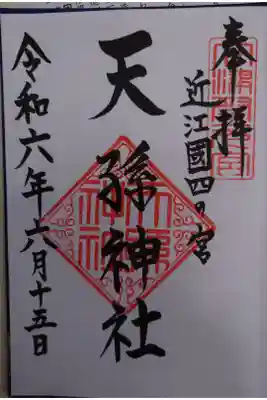 奉拝
近江國四の宮
天孫神社
令和六年六月十五日